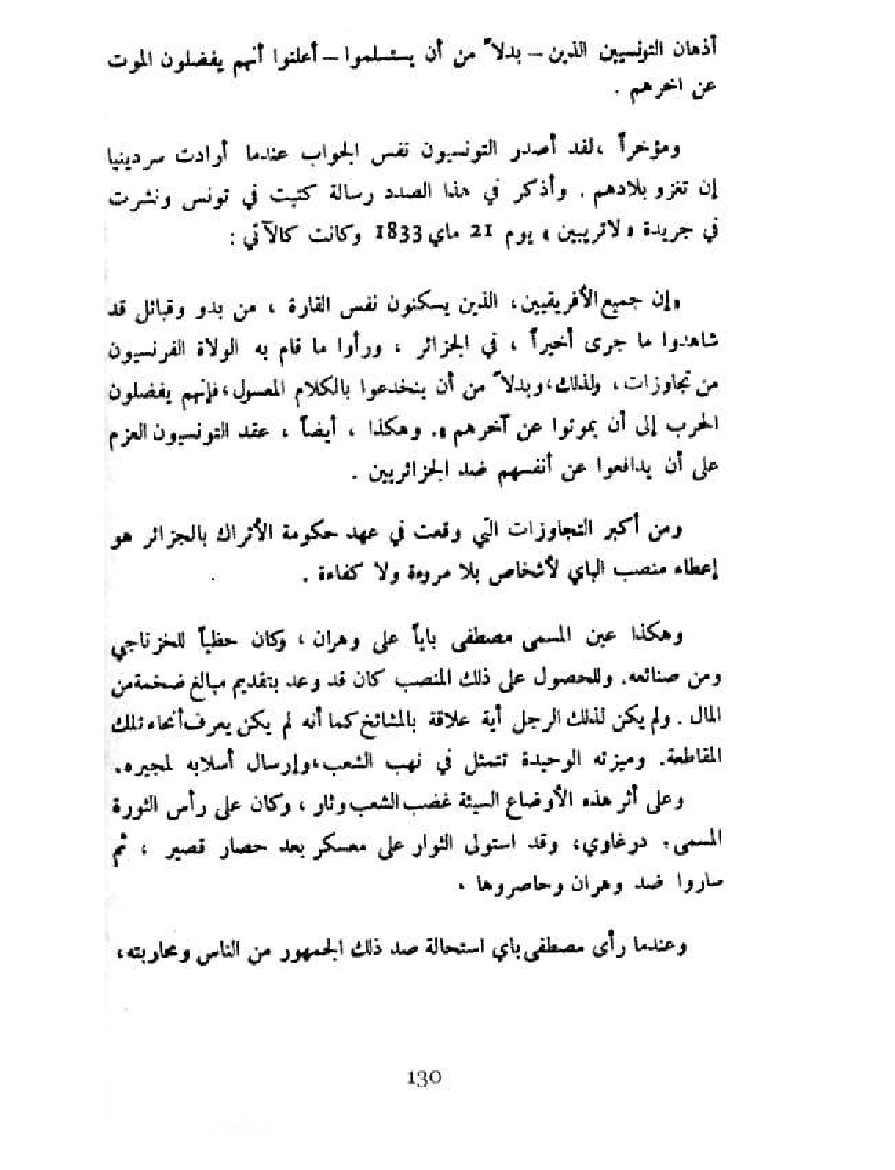 أذهان التونسيين الذين – بدلاً من أن يستسلموا – أعلنوا أنهم يفضلون الموت
عن اخرهم .
ومؤخراً ،لقد أصدر التونسيون نفس الجواب عندما أرادت سردينيا
إن تغزو بلادهم . وأذكر في هذا الصدد رسالة كتبت في تونس ونشرت
في جريدة «لاتريبين» يوم 21 ماي 1833 وكانت كالآتي :
«إن جميع الأفريقيين، الذين يسكنون نفس القارة ، من بدو وقبائل قد
شاهدوا ما جرى أخيراً ، في الجزائر ، ورأوا ما قام به الولاة الفرنسيون
من تجاوزات، ولذلك،وبدلاً من أن ينخدعوا بالكلام المعسول،فإنهم يفضلون
الحرب إلى أن يموتوا عن آخرهم». وهكذا ، أيضاً ، عقد التونسيون العزم
على أن يدافعوا عن أنفسهم ضد الجزائريين .
ومن أكبر التجاوزات التي وقعت في عهد حكومة الأتراك بالجزائر هو
إعطاء منصب الباي لأشخاص بلا مروءة ولا كفاءة .
وهكذا عين المسمى مصطفى باياً على وهران ، وكان حظياً للخزناجي
ومن صنائعه. وللحصول على ذلك المنصب كان قد وعد بتقديم مبالغ ضخمة من
المال . ولم يكن لذلك الرجل أية علاقة بالمشائخ كما أنه لم يكن يعرف أنحاء تلك
المقاطعة. وميزته الوحيدة تتمثل في نهب الشعب،وإرسال أسلابه لمجيره.
وعلى أثر هذه الأوضاع السيئة غضب الشعب وثار ، وكان على رأس الثورة
المسمى: درغاوي، وقد استولى الثوار على معسكر بعد حصار قصير ، ثم
ساروا ضد وهران وحاصروها .
وعندما رأى مصطفى باي استحالة صد ذلك الجمهور من الناس ومحاربته،
130